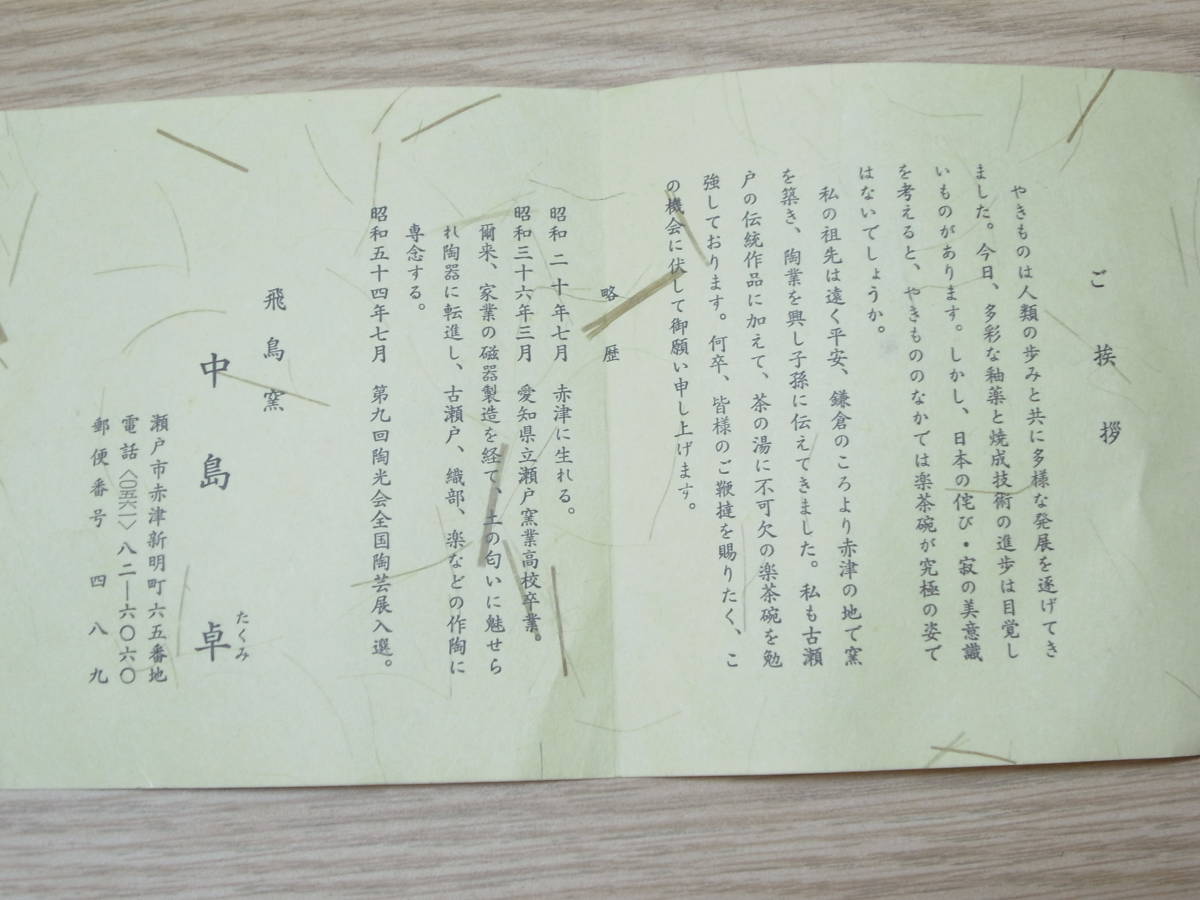 ご挨拶
やきものは人類の歩みと共に多様な発展を遂げてき
ました。今日、多彩な釉薬と焼成技術の進歩は目覚し
いものがあります。しかし、日本の侘び・寂の美意識
を考えると、やきもののなかでは楽茶碗が究極の姿で
はないでしょうか。
私の祖先は遠く平安、鎌倉のころより赤津の地で窯
を築き、陶業を興し子孫に伝えてきました。私も古瀬
戸の伝統作品に加えて、茶の湯に不可欠の楽茶碗を勉
強しております。何卒、皆様のご鞭撻を賜りたく、こ
の機会に伏して御願い申し上げます。
略歴
昭和二十年七月 赤津に生れる。
昭和三十六年三月 愛知県立瀬戸窯業高校卒業。
爾来、家業の磁器製造を経て、土の匂いに魅せら
れ陶器に転進し、古瀬戸、織部、楽などの作陶に
専念する。
昭和五十四年七月 第九回陶光会全国陶芸展入選。
飛鳥窯
中島卓
たくみ
瀬戸市赤津新明町六五番地
電話〈〇五六一〉八二―六〇六〇
郵便番号 四八九